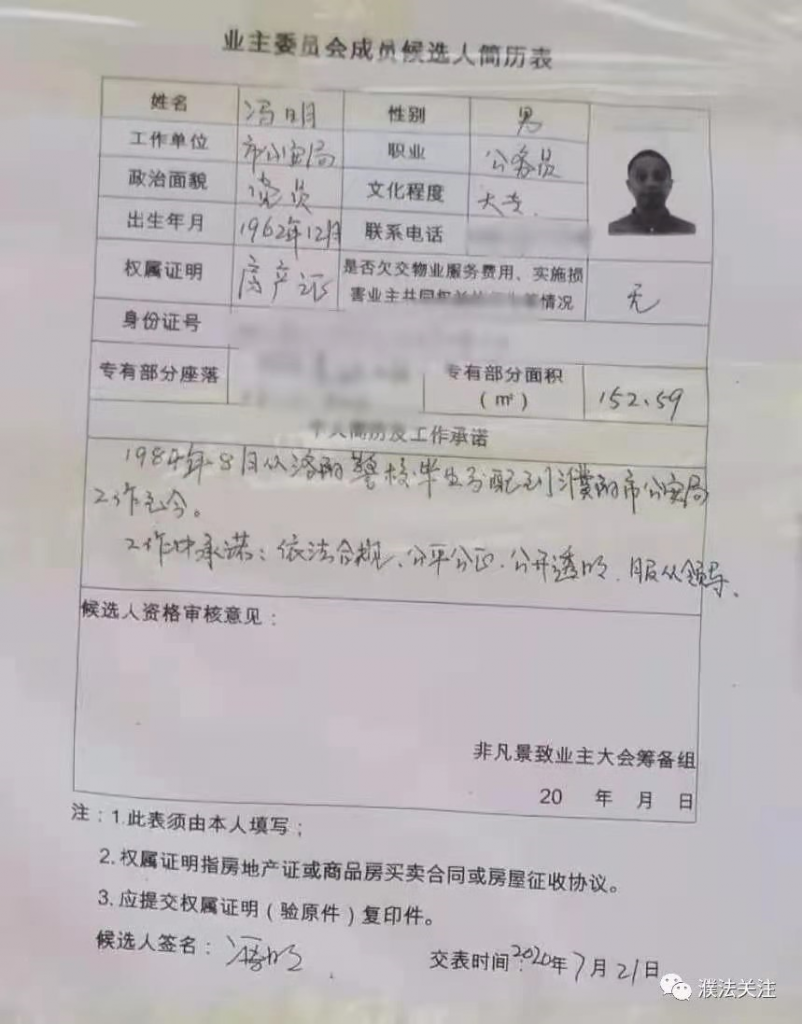 业主委员会成员候选人简历表
姓名 冯明 性别 男
工作单位 市公安局 职业 公务员
政治面貌 党员 文化程度 大专
出生年月 1962年12月 联系电话
权属证明 房产证 是否欠交物业服务费用、实施损
害业主共同 情况 无
身份证号
专有部分座落 专有部分面积
(㎡) 152.59
个人简历及工作承诺
1984年8月从洛阳警校毕业分配到濮阳市公安局
工作至今。
工作中承诺：依法合规、公平公正、公开透明、服从领导、
候选人资格审核意见：
非凡景致业主大会筹备组
20 年 月 日
注：1.此表须由本人填写；
2.权属证明指房地产证或商品房买卖合同或房屋征收协议。
3.应提交权属证明（验原件）复印件。
候选人签名：冯明 交表时间：2020年7月21日
濮法关注